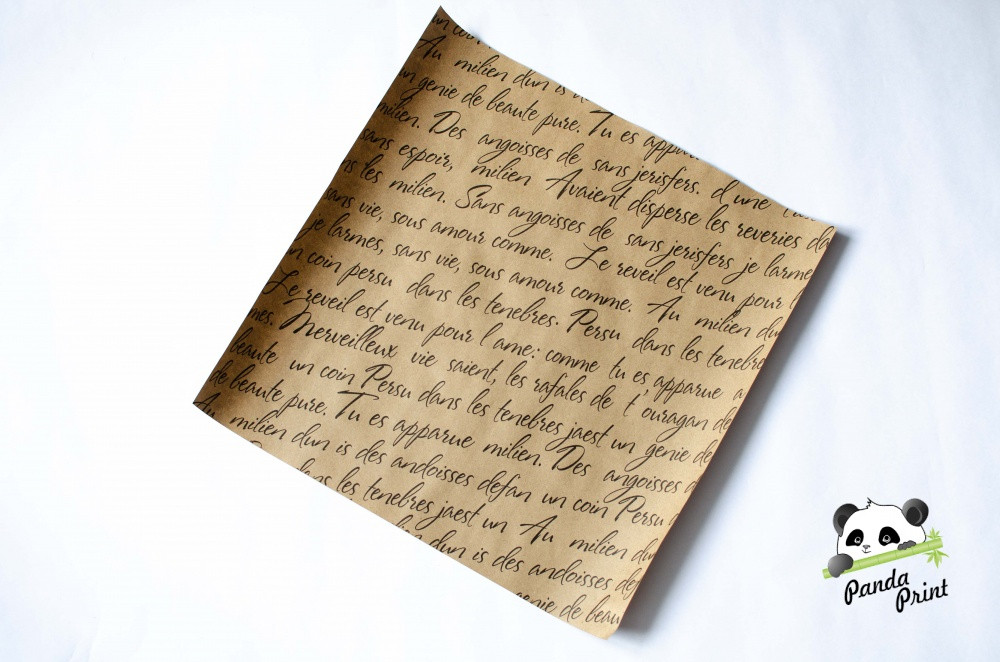 un coin
Au milien d'un is d
un genie de beaute pure. Tu es appa
milien. Des angoisses de sans jerisfers. d une
sans espoir, milien Avaient disperse les reveries da
ns les milien. Sans angoisses de sans jerisfers je larme
sans vie, sous amour comme. Le reveil est venu pour l
je larmes, sans vie, sous amour comme. Au milien du
n coin persu dans les tenebres. Persu dans les tenebre
Le reveil est venu pour l ame: comme tu es, apparue a
mes. Merveilleux vie saient, les rafales de t ouragan de
beaute un coin Persu dans les tenebres jaest un genie de
de beaute pure. Tu es apparue milien. Des angoisses d
Au milien dun is des andoisses defan un coin Persu
dans les tenebres jaest un Au milien dun
dun is des andoisses def
genie de beau
Panda
Print